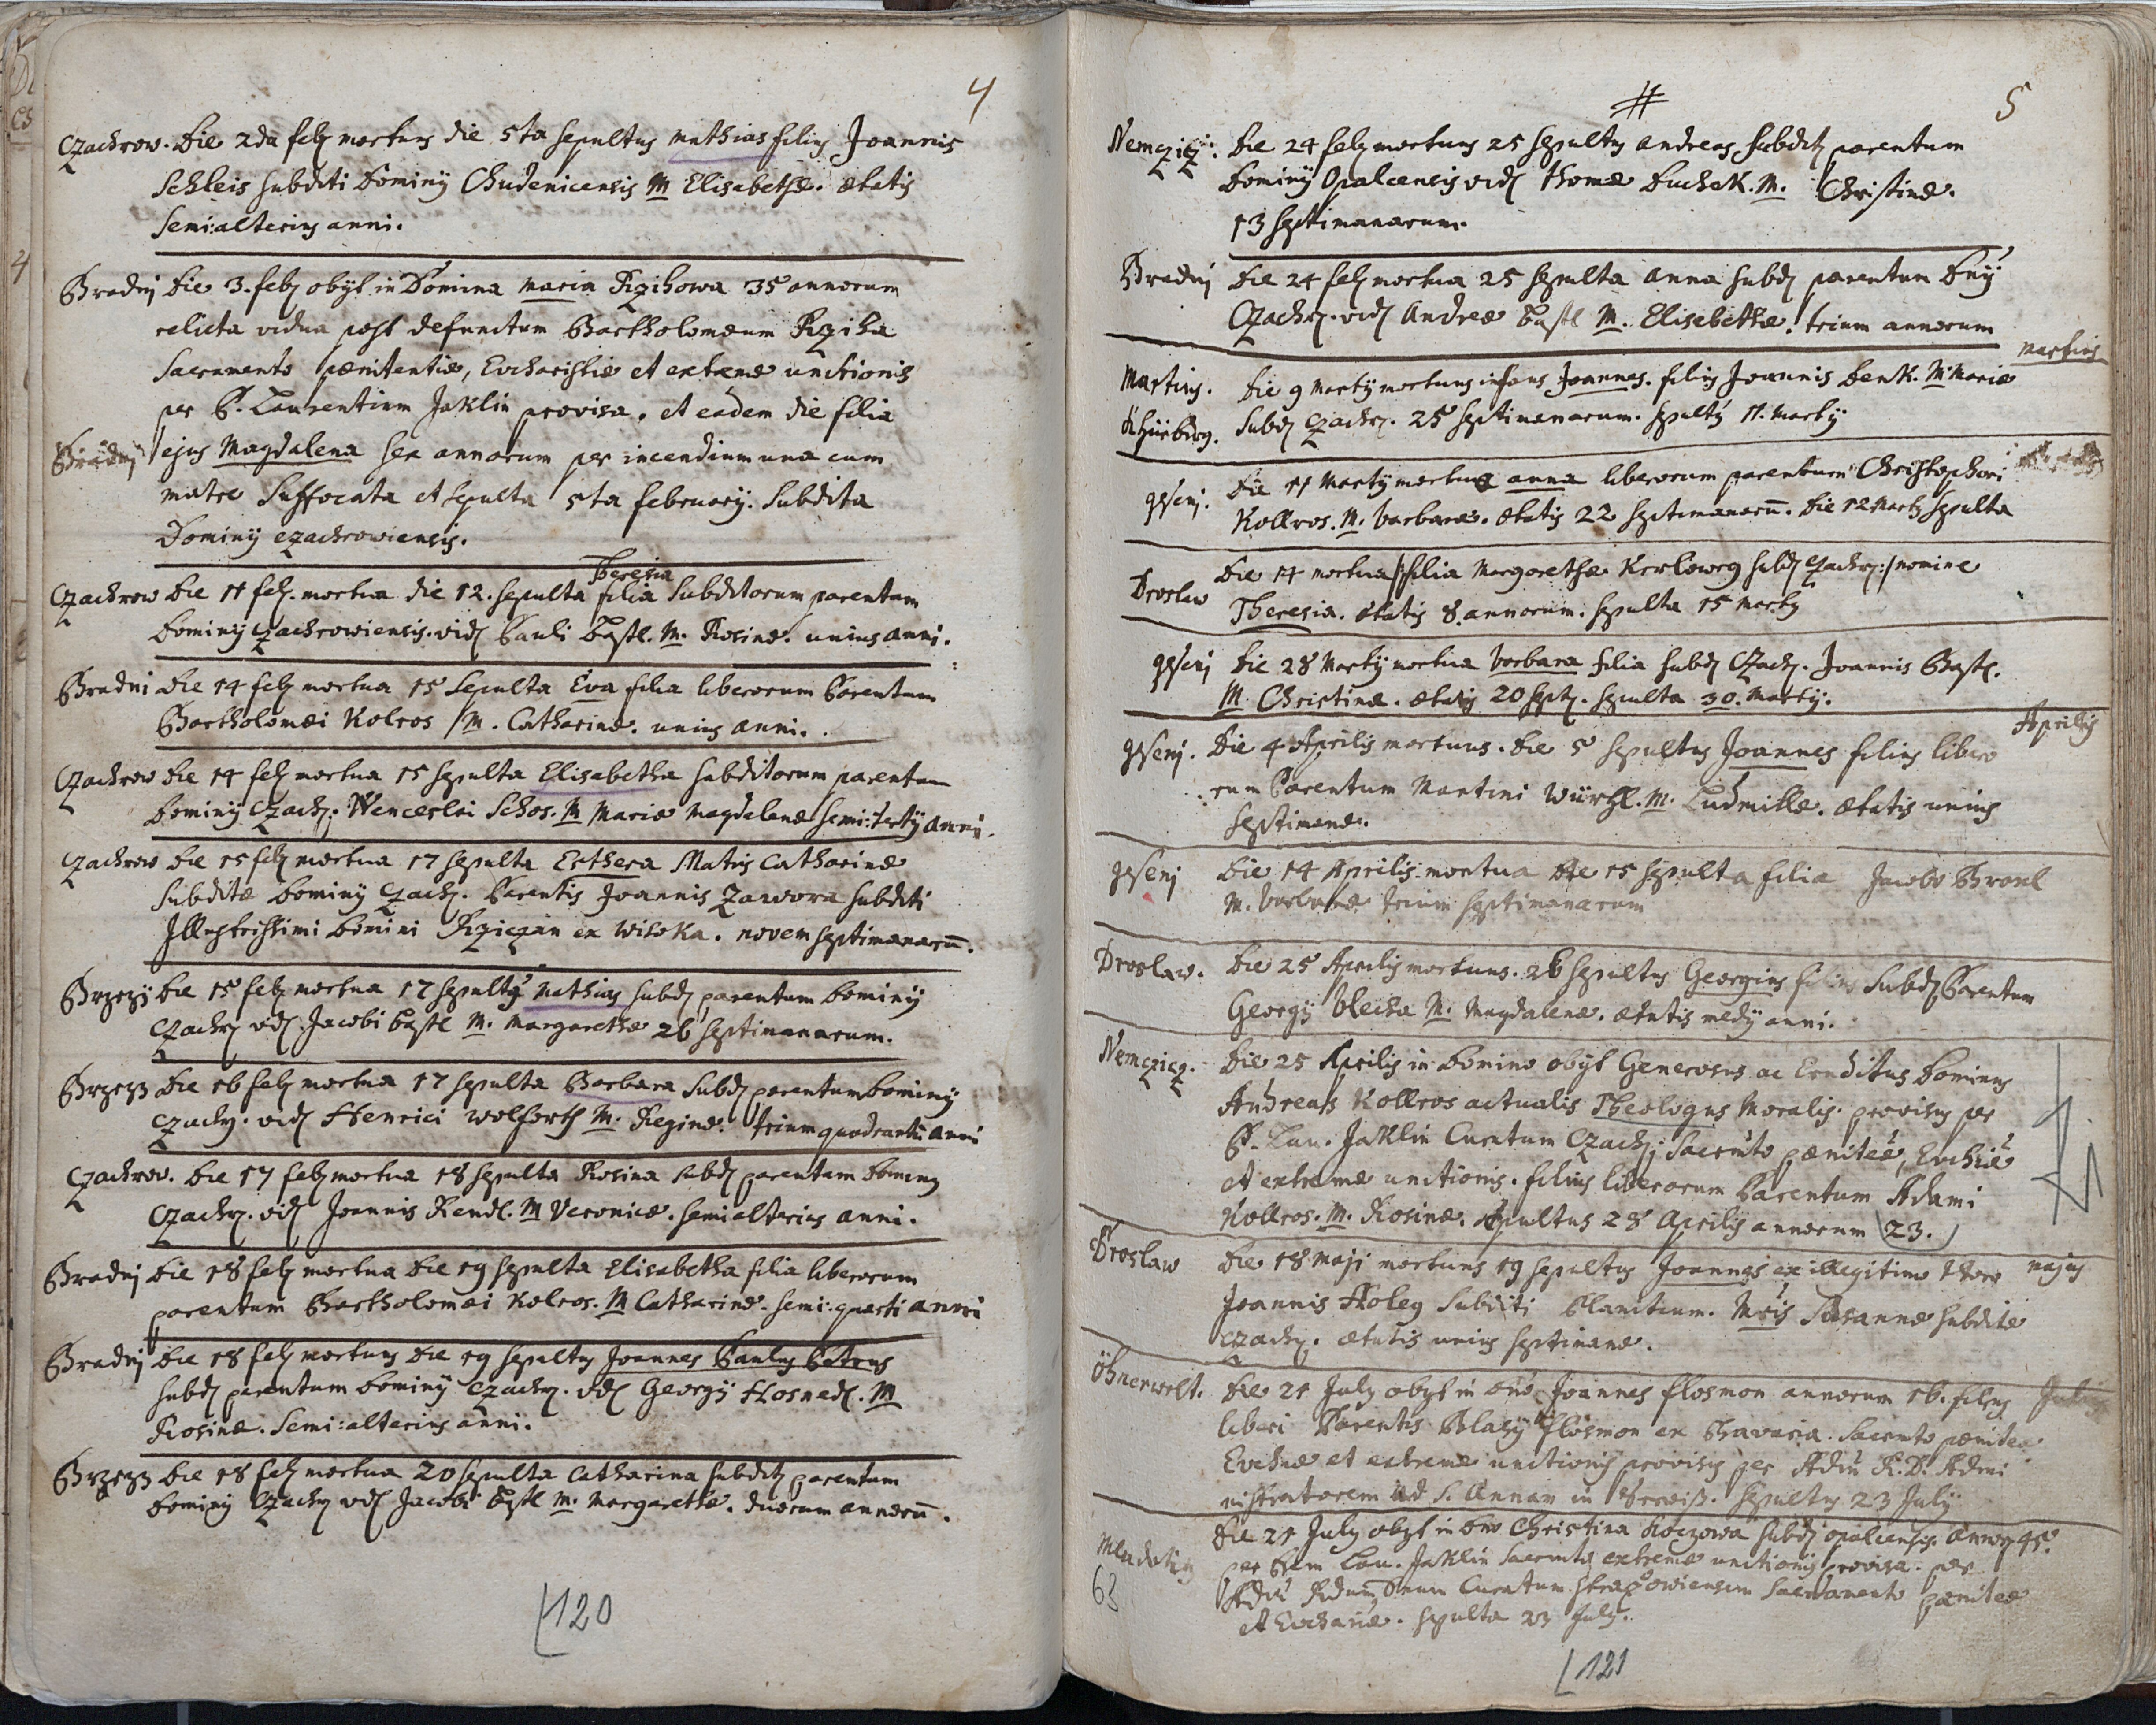 4
Czachrow. Die 2da feb mortuus die 5ta sepultus Mathias filius Joannis
Schleis subditi Dominij Chudenicensis M Elisabethæ. ætatis
semi:alterius anni.
Bradnj Die 3. feb obijt in Domina Maria Rzihowa 35 annorum
relicta vidua post defunctum Bartholomæum Rziha
Sacramento pænitentiæ, Eucharistiæ et extremæ unctionis
per P. Laurentium Jaklin provisa. et eadem die filia
Bradnj ejus Magdalena sex annorum per incendium una cum
matre suffocata et sepulta 5ta february. Subdita
Dominij czachrowiensis.
Theresia
Czachrow Die 11 feb. mortua die 12. sepulta filia Subditorum parentum
Dominij Czachrowiensis. vid Pauli Bastl. M. Rosinæ. unius anni.
Bradni Die 14 feb mortua 15 Sepulta Eva filia liberorum Parentum
Bartholomæi Kolros M. Catharinæ. unius anni.
Czachrow Die 14 feb mortua 15 sepulta Elisabetha subditorum parentum
Dominij Czach. Wenceslai Schos. M Mariæ Magdalenæ semi:tertij anni.
Czachrow Die 15 feb mortua 17 sepulta Esthera Matris Catharinæ
Subditæ Dominij Czach. Parentis Joannis Zawora subditi
Illustrissimi Domini Rziczan ex Wisoka. novem septimanarū.
Brzezÿ Die 15 feb mortua 17 sepultus Mathias subd parentum Dominij
Czach vid. Jacobi Bastl M. Margarethæ 26 septimanarum.
Brzezÿ Die 16 feb mortua 17 sepulta Barbara Subd parentum Dominij
Czach. vid Henrici Wolforth M. Reginæ. trium quadrantū anni
Czachrow. Die 17 feb mortua 18 sepulta Rosina subd parentum Dominij
Czach. vid Joannis Rendl. M Veronicæ. semi alterius anni.
Bradnj Die 18 feb mortua Die 19 sepulta Elisabetha filia liberorum
parentum Bartholomæi Kolros. M Catharinæ. semi:quarti anni
Bradnj Die 18 feb mortuus Die 19 sepultus Joannes Paulus Petrus
subd parentum Dominij Czach. vid Georgij Hosnedl. M
Rosinæ. Semi:alterius anni.
Brzezÿ Die 18 feb mortua 20 sepulta Catharina subdit parentum
Dominij Czach vid Jacobi Bastl M. Margarethæ. duorum annorū.
120
5
Nemcziz: Die 24 feb mortuus 25 sepultus Andreas subdit parentum
Dominij Opalcensis vid Thomæ Duchek. M. Christinæ.
13 septimanarum.
Bradnj Die 24 feb mortua 25 sepulta Anna subd parentum Dnÿ
Czach. vid Andreæ Bastl M. Elisabethæ. trium annorum
Martius
Martius. Die 9 Martij mortuus infans Joannes. filius Joannis Benk. M Mariæ
Subd Czach. 25 septimanarum. sepultus 11. Martij
gesenj. Die 11 Martij mortua Anna liberorum parentum Christophori
Kollros. M. Barbaræ. ætatis 22 septimanarū. Die 12 Marty sepulta
Droslaw Die 14 mortua filia Margarethæ subd Czach: nomine
Theresia. ætatis 8 annorum. sepulta 15 Marty
gesenj Die 28 Martij mortua Barbara filia subd Czach. Joannis Bastl.
M. Christinæ. ætatis 20 sept. sepulta 30. Martij.
Aprilis
gesenj. Die 4 Aprilis mortuus. Die 5 sepultus Joannes filius libero
rum Parentum Martini Würzl. M. Ludmillæ. ætatis unius
septimanæ.
gesenj Die 14 Aprilis mortua Die 15 sepulta filia Jacobo Braxl
M. Barbaræ trium septimanarum
Droslaw. Die 25 Aprilis mortuus. 26 sepultus Georgius filius Subd Parentum
Georgij Blecha M. Magdalenæ. ætatis medij anni.
Nemczicz. Die 25 Aprilis in Domino obijt Generosus ac Eruditus Dominus
Andreas Kollros actualis Theologus Moralis. provisus per
P. Lau. Jaklin Curatum Czach; Sacrmto pæniteæ, Euchiæ
et extremæ unctionis. filius liberorum Parentum Adami
Kollros. M. Rosinæ. sepultus 28 Aprilis annorum 23.
Droslaw Die 18 Maji mortuus 19 sepultus Joannes ex illegitimo thoro majus
Joannis Holeg Subditi Planitium. Mris Susannæ subditæ
Czach. ætatis unius septimanæ.
Die 21 July obijt in Dno Joannes Flosmon annorum 16. filius
liberi Parentis Blasij Flosmon ex Bavaria. Sacrmto pæniteæ
Euchæ et extremæ unctionis provisus per Adm R. D. Admi
nistratorem ad S. Annam in. Sepultus 23 July
Die 21 July obijt in Dno Christina Koczowa subd opalcensis annor 45.
per Lau. Jaklin Sacrmto extremæ unctionis provisa. per
Adm Rdum Dnum Curatum Sacramento pæniteæ
et Euchariæ. sepulta 23 July.
63
121